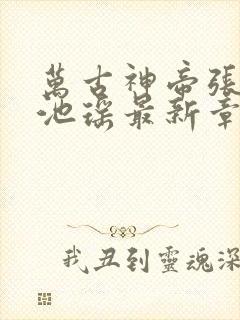 萬古神帝張
池瑤最新章
我丑到靈魂深